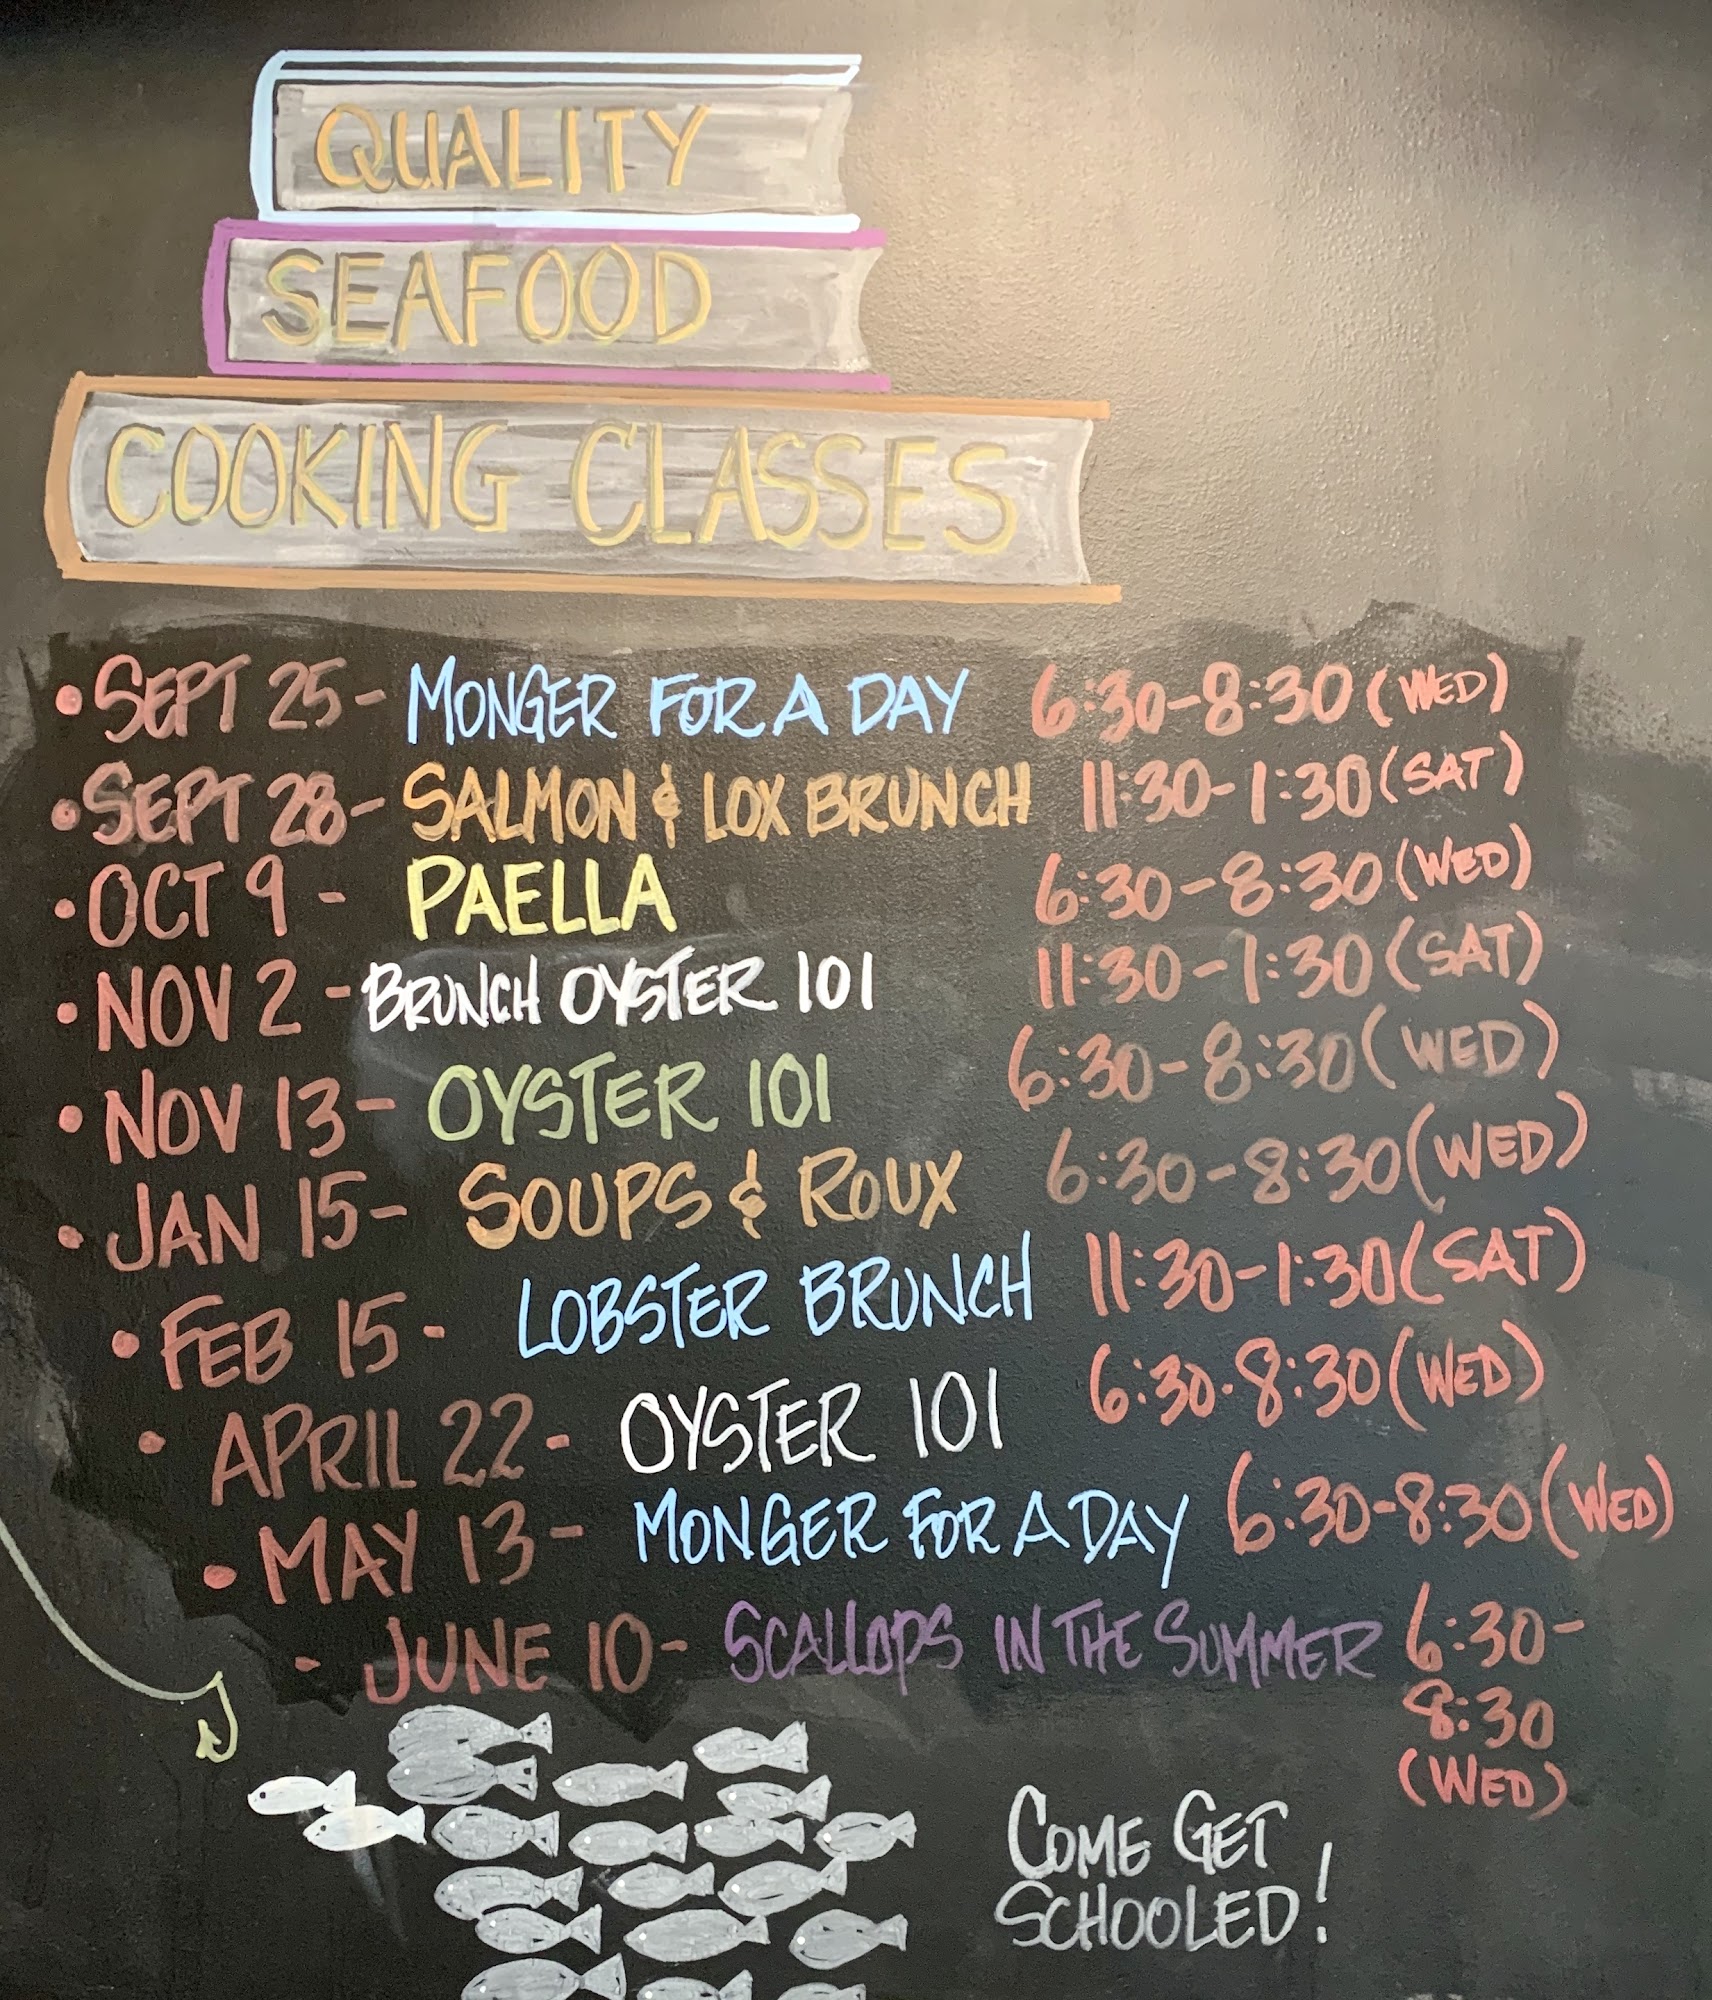 QUALITY
SEAFOOD
COOKING CLASSES
• SEPT 25 - MONGER FOR A DAY 6:30-8:30 (WED)
• SEPT 28 - SALMON & LOX BRUNCH 11:30-1:30 (SAT)
• OCT 9 - PAELLA 6:30-8:30 (WED)
• NOV 2 - BRUNCH OYSTER 101 11:30-1:30 (SAT)
• NOV 13 - OYSTER 101 6:30-8:30 (WED)
• JAN 15 - SOUPS & ROUX 6:30-8:30 (WED)
• FEB 15 - LOBSTER BRUNCH 11:30-1:30 (SAT)
• APRIL 22 - OYSTER 101 6:30-8:30 (WED)
• MAY 13 - MONGER FOR A DAY 6:30-8:30 (WED)
- JUNE 10 - SCALLOPS IN THE SUMMER 6:30-
8:30
(WED)
COME GET
SCHOOLED!